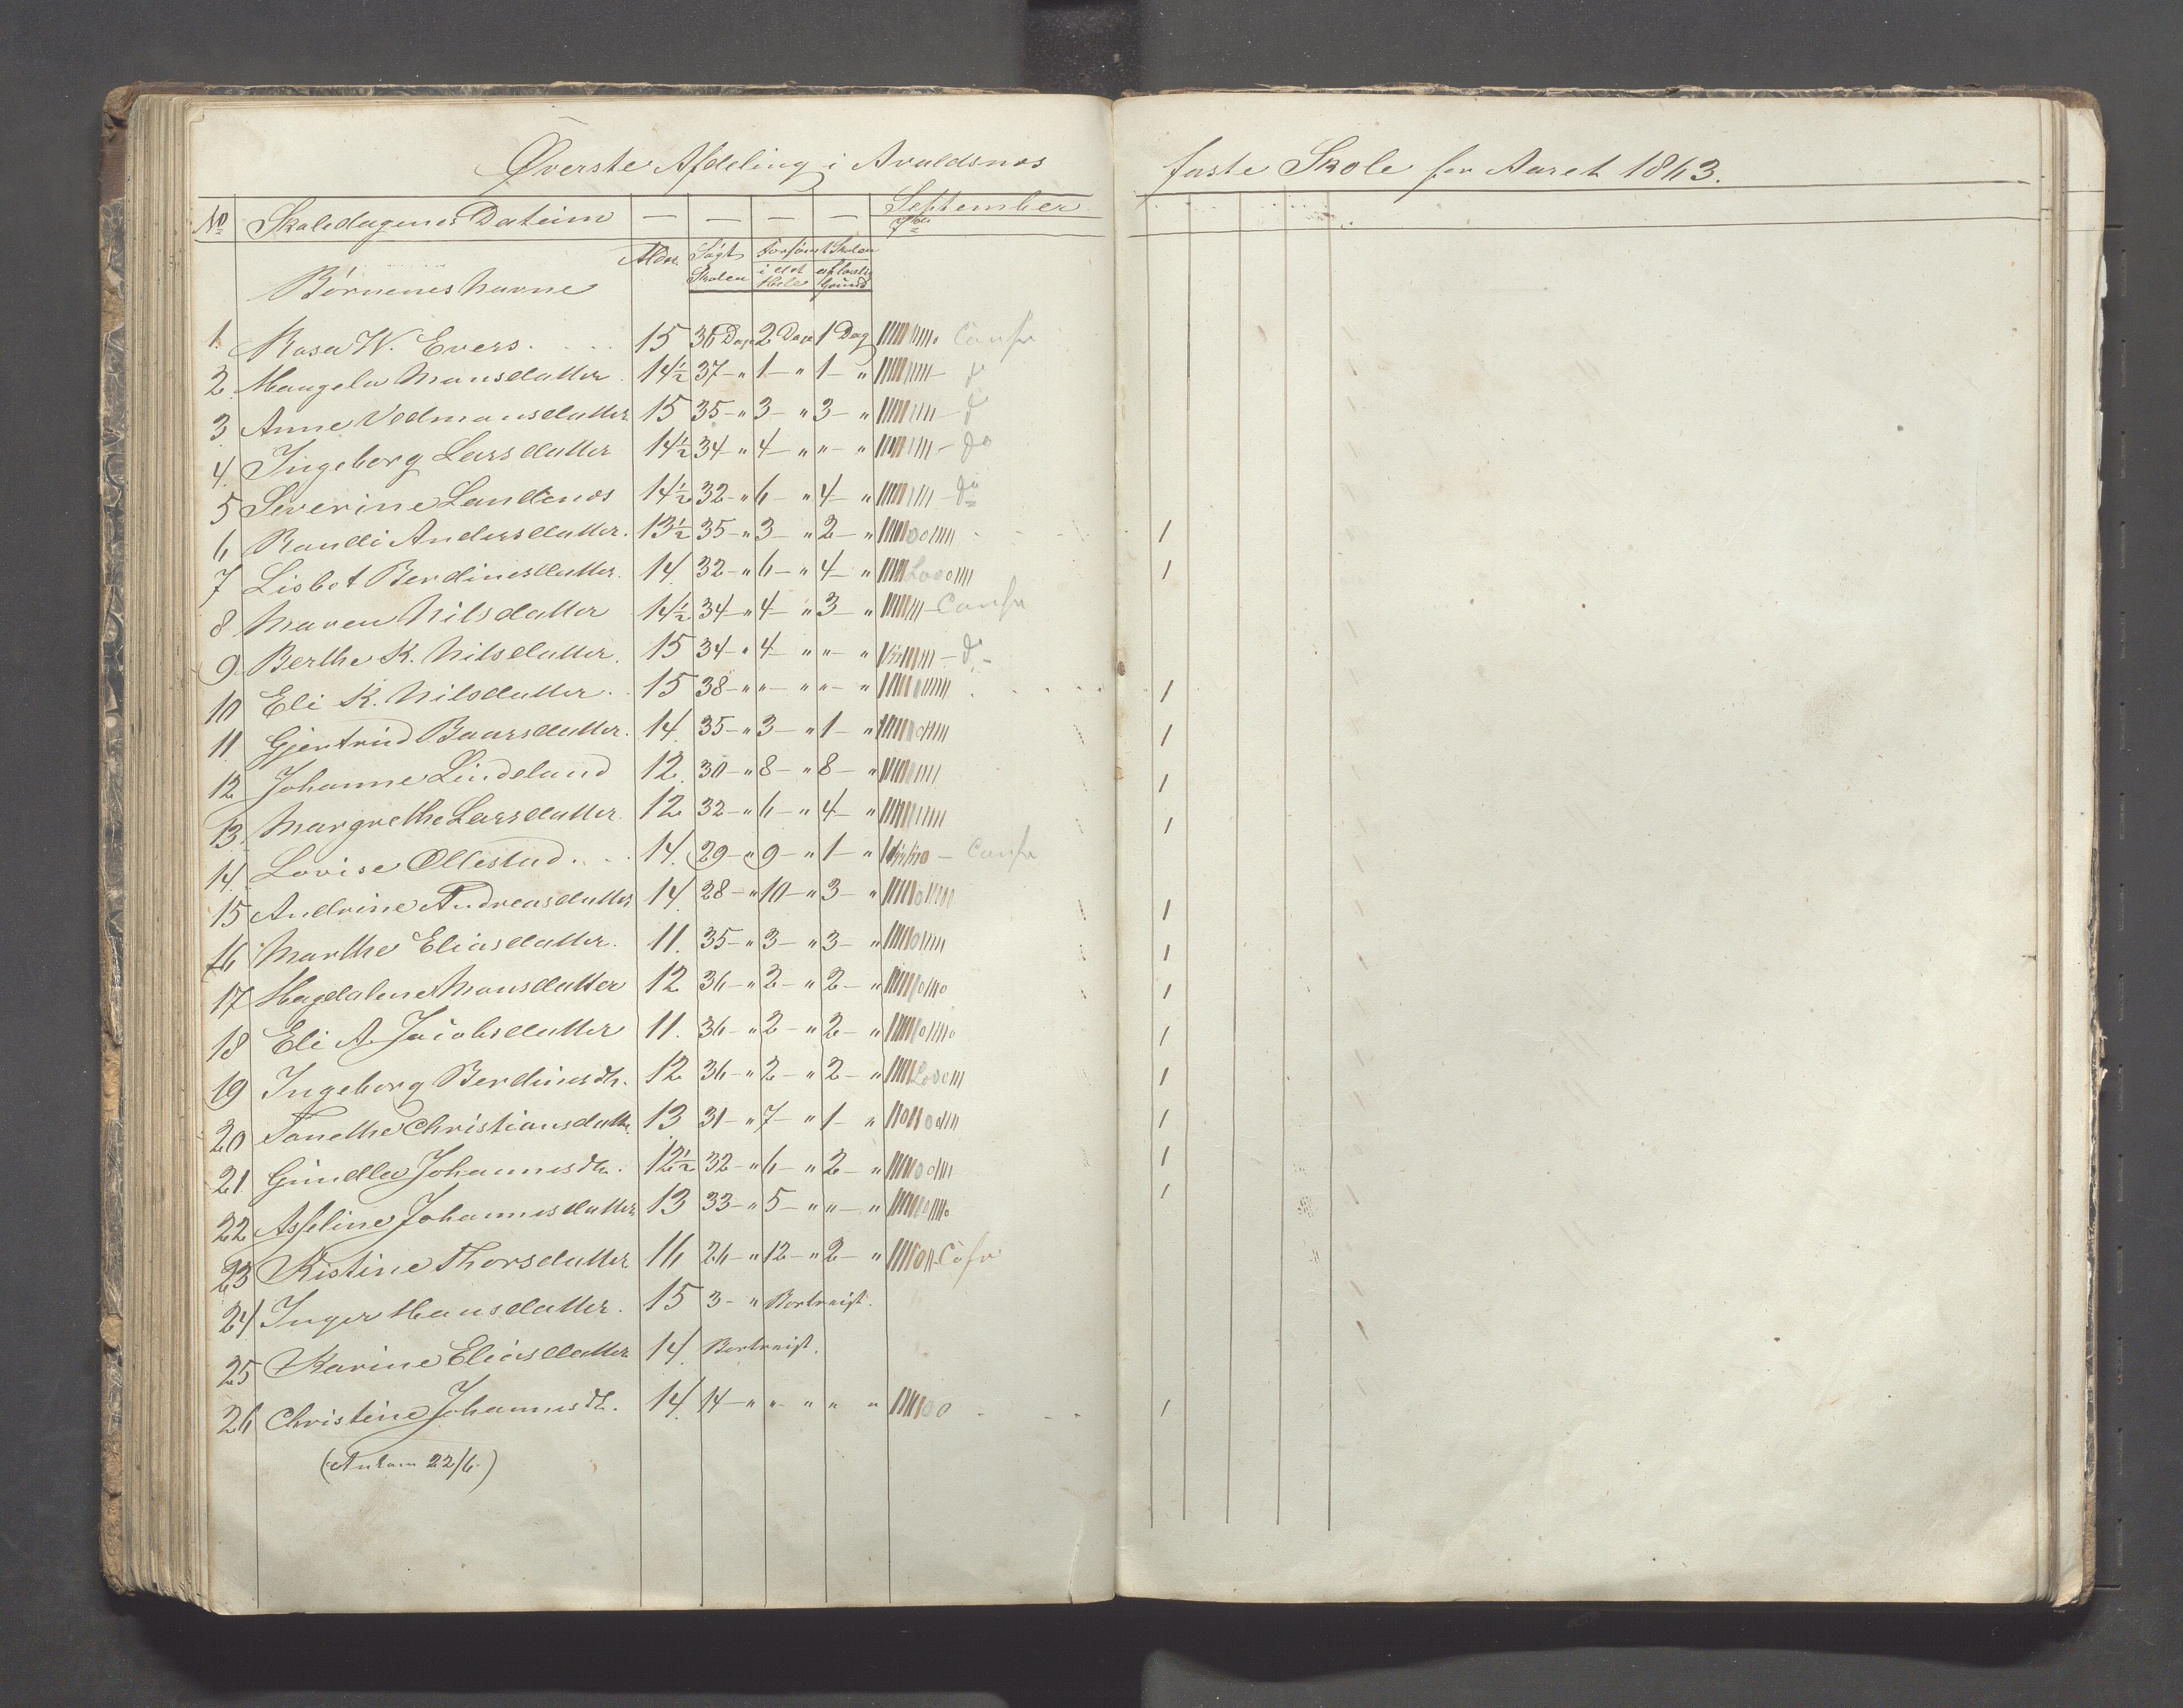 Øverste Afdeling i Avaldsnæs
faste Skole for Aaret 1863.
No Skoledagenes Datum — — — — September
Børnenes Navne Alder Søgt Skolen Forsømt Skolen i det Hele af lovlig Grund
1. Rosa W. Evers. 15 36 Dage 2 Dage 1 Dag Confir
2. Mangela Monsdatter 14½ 37 - " 1 - " 1 - " do
3. Anne Vedmansdatter 15 35 - " 3 - " 3 - " do
4. Ingeborg Larsdatter 14½ 34 - " 4 - " " - " do
5 Severine Landenæs 14½ 32 - " 6 - " 4 - " do
6 Randi Andersdatter. 13½ 35 - " 3 - " 2 - " 1
7 Lisbet Berdinesdatter. 14. 32 - " 6 - " 4 - " 1
8 Maren Nilsdatter 14½ 34 - " 4 - " 3 - " Confir
9. Berthe K. Nilsdatter. 15 34 - " 4 - " " - " do
10 Eli K. Nilsdatter. 15 38 - " " - " " - " 1
11. Gjertrud Baarsdatter. 14. 35 - " 3 - " 1 - " 1
12 Johanne Lindeland 12. 30 - " 8 - " 8 - " 1
13. Margrethe Larsdatter. 12 32 - " 6 - " 4 - " 1
14. Lovise Ollestad. 14. 29 - " 9 - " 1 - " Confir
15 Andrine Andreasdatter 14. 28 - " 10 - " 3 - " 1
16 Marthe Eliasdatter. 11. 35 - " 3 - " 3 - " 1
17 Magdalene Monsdatter 12 36 - " 2 - " 2 - " 1
18 Eli A. Jacobsdatter 11. 36 - " 2 - " 2 - " 1
19 Ingeborg Berdinesdtr. 12 36 - " 2 - " 2 - " 1
20 Tanethe Christiansdatter 13 31 - " 7 - " 1 - " 1
21. Gundla Johannesdtr. 12½ 32 - " 6 - " 2 - " 1
22 Asseline Johannesdatter 13 33 - " 5 - " " - " 1
23 Kistine Thorsdatter 16 26 - " 12 - " 2 - " Cofir
24 Inger Hansdatter. 15 3 - " Bortreist.
25 Karine Eliasdatter 14. Bortreist.
26 Christine Johannesdtr. 14. 14 - " " - " " " 1
(Ankom 22/6.)